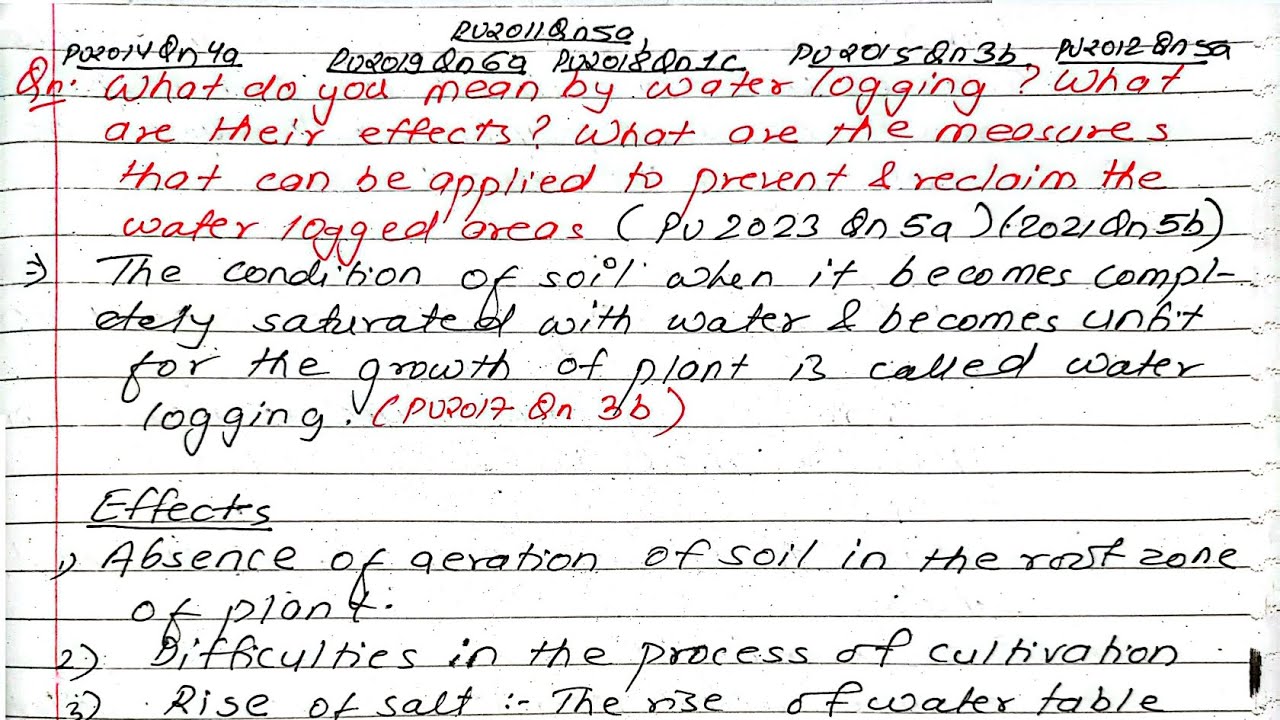 PU2011Qn5a,
PU2014Qn4a PU2019Qn6a PU2018Qn1c PU2015Qn3b PU2012Qn5a
Qn: What do you mean by water logging? What
are their effects? What are the measures
that can be applied to prevent & reclaim the
water logged areas (PU 2023 Qn 5a) (2021Qn5b)
⇒ The condition of soil when it becomes compl-
etely saturated with water & becomes unfit
for the growth of plant is called water
logging. (PU2017 Qn 3b)
Effects
1) Absence of aeration of soil in the root zone
of plant.
2) Difficulties in the process of cultivation
3) Rise of salt :- The rise of water table